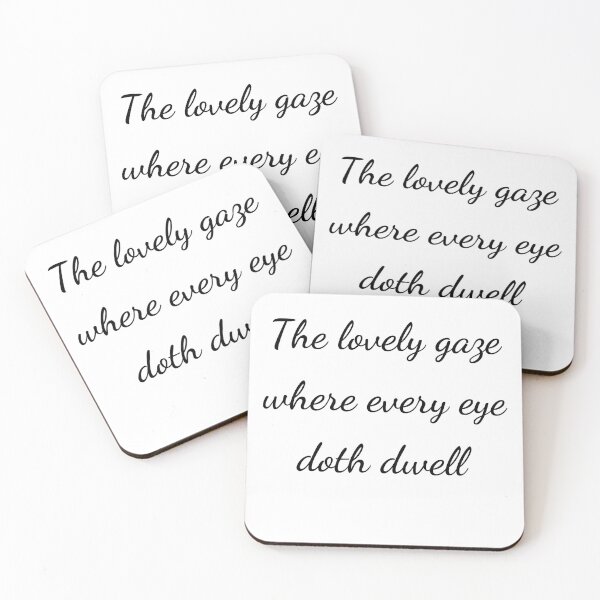 The lovely gaze
where every
The lovely gaze
where every eye
doth dwell
The lovely gaze
where every eye
doth
The lovely gaze
where every eye
doth dwell